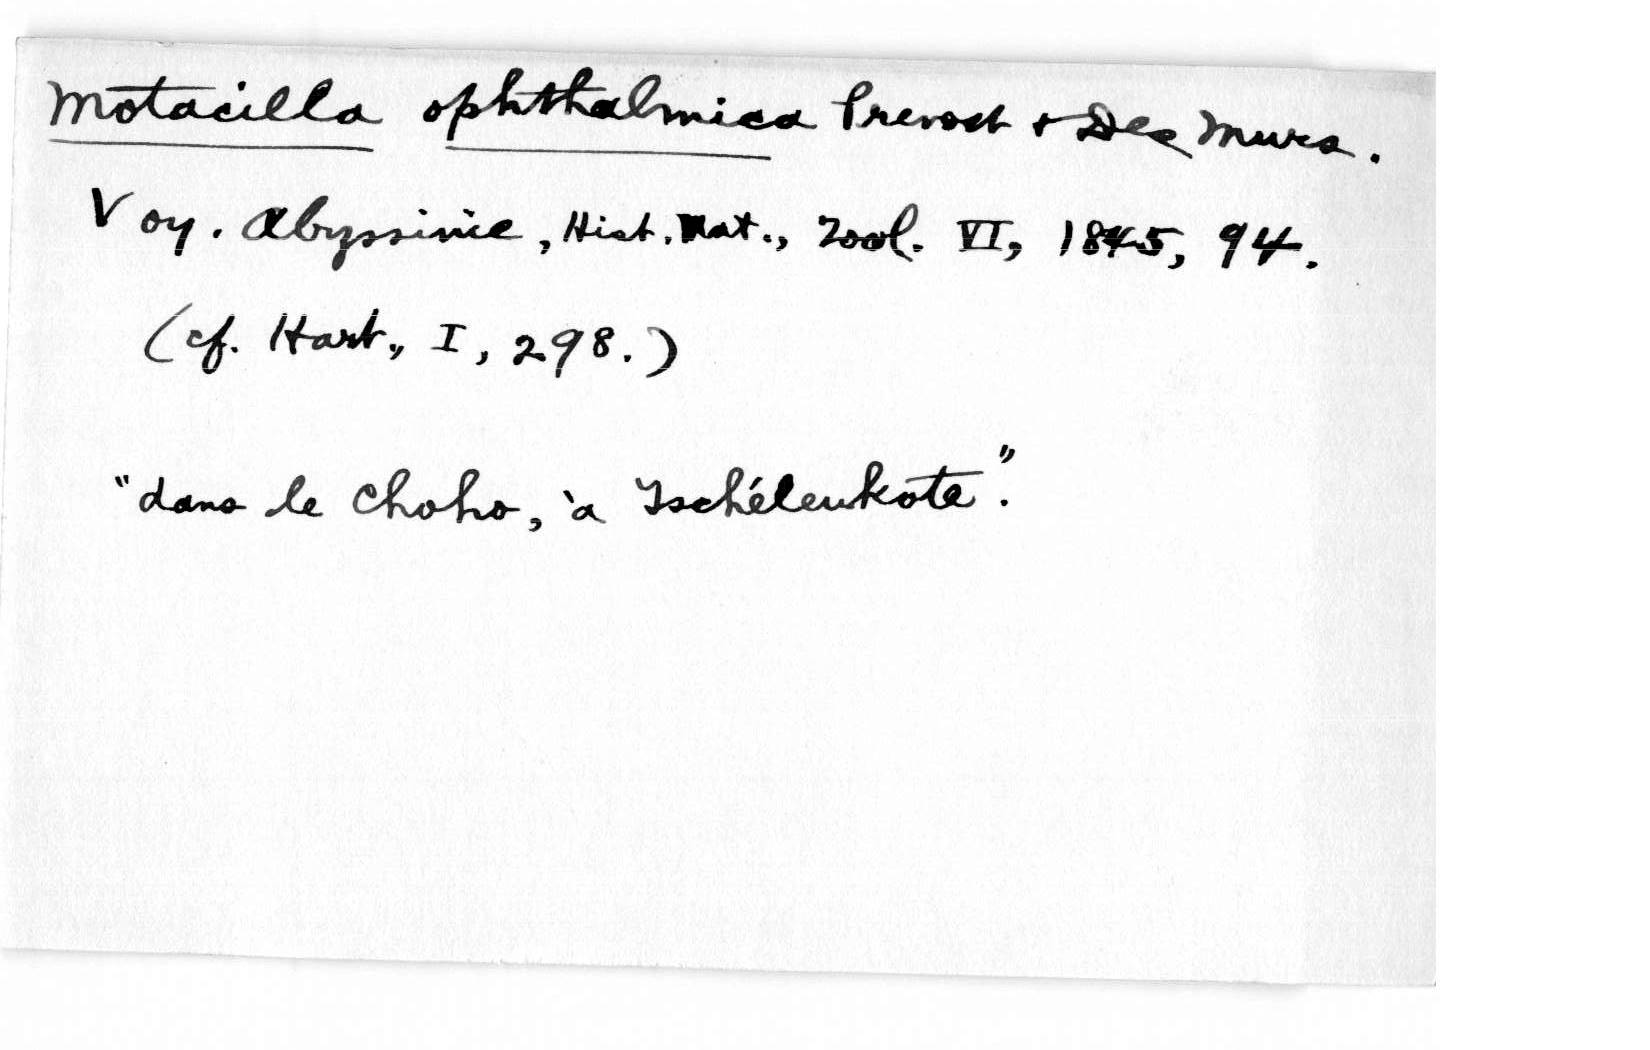 Motacilla ophthalmica Prevost + Des Murs.
Voy. Abyssinie, Hist. Nat., Zool. VI, 1845, 94.
(cf. Hart., I, 298.)
"dans le Choho, à Tschéleukote".